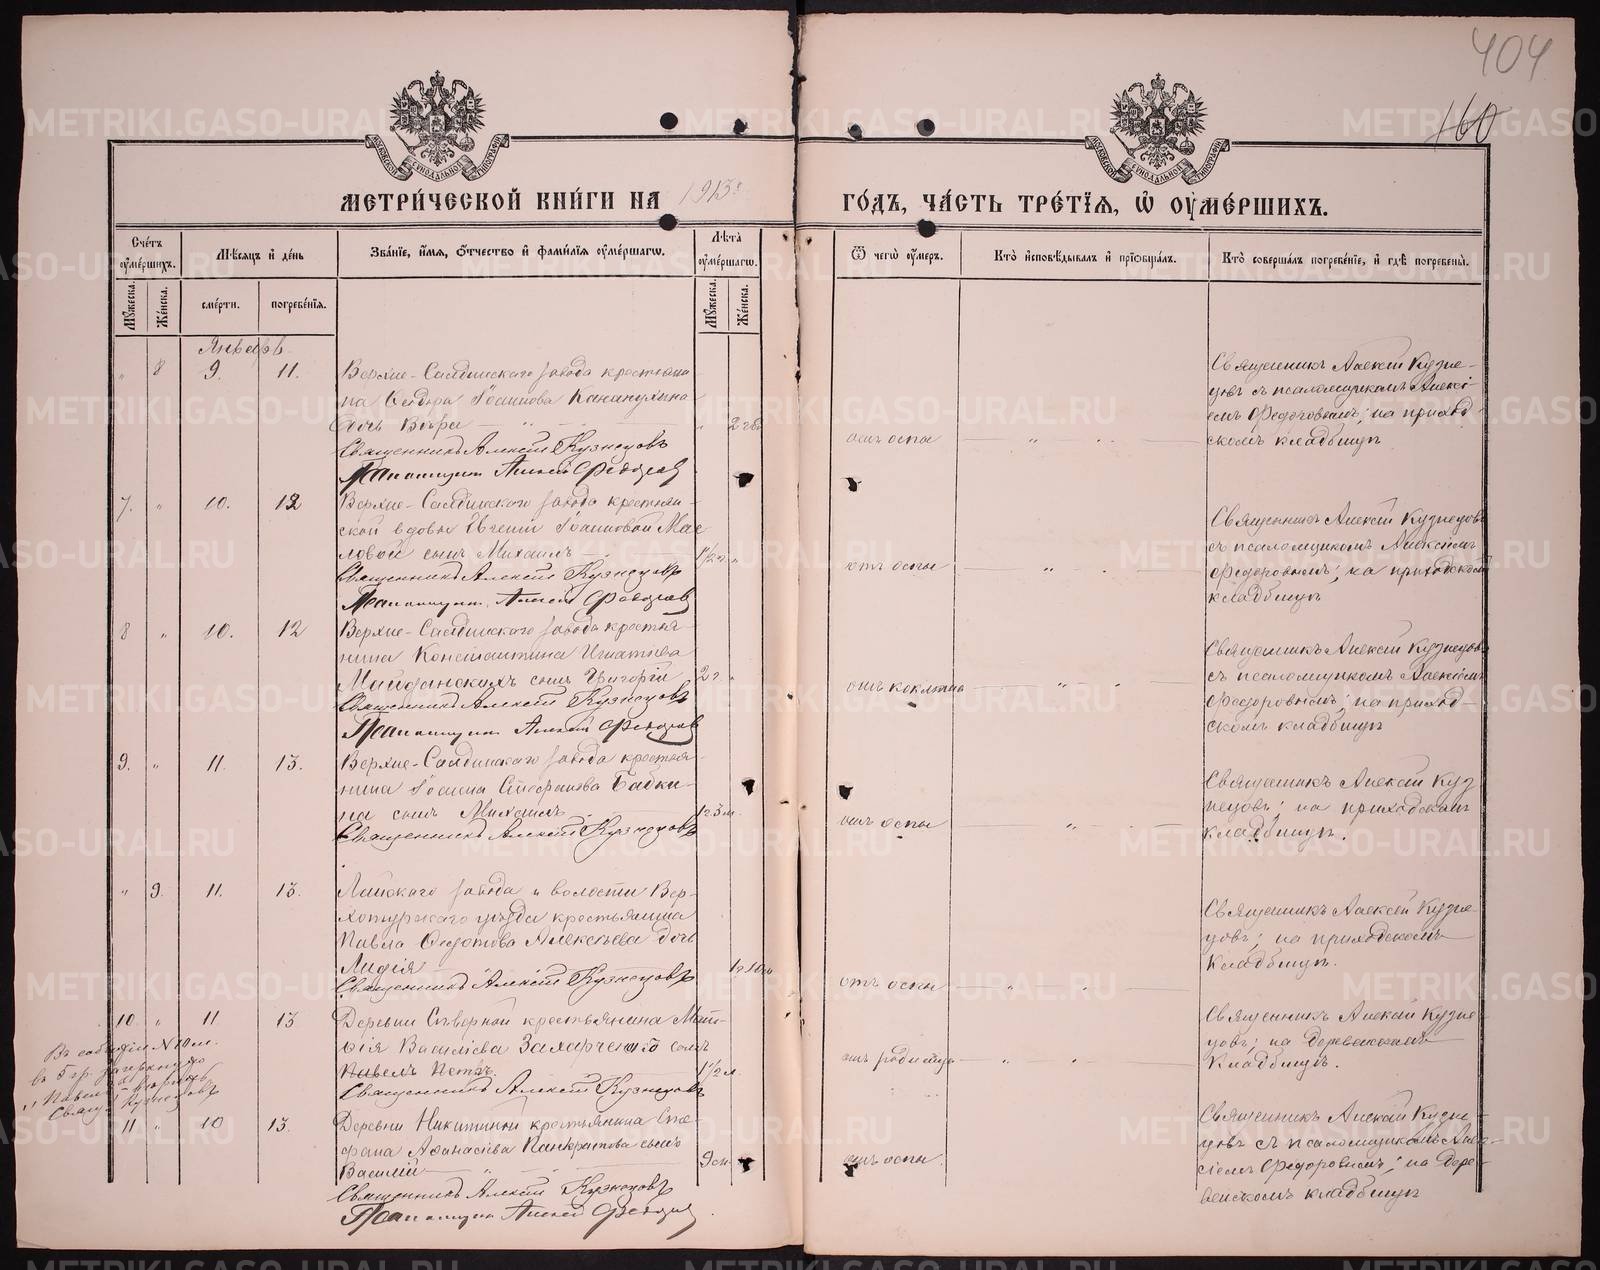 404
160
МЕТРИ́ЧЕСКОЙ КНИ́ГИ НА 1913 ГО́ДЪ, ЧА́СТЬ ТРЕ́ТІѦ, Ѡ҆ ОУ҆МЕ́РШИХЪ.
Сче́тъ оу҆ме́ршихъ.
Мѣ́сяцъ и҆ де́нь
Зва́нїе, и҆́мя, ѻ҆́тчество и҆ фами́лїя оу҆ме́ршагѡ.
Лѣ́та оу҆ме́ршагѡ.
Ѿ чегѡ̀ оу҆́меръ.
Кто̀ и҆сповѣ́дывалъ и҆ прїѡбща́лъ.
Кто̀ соверша́лъ погребе́нїе, и҆ гдѣ̀ погребены̀.
Му́жеска.
Же́нска.
сме́рти.
погребе́нїя.
Му́жеска.
Же́нска.
Январь
" 8 9. 11. Верхне-Салдинскаго завода крестьяни-
на Исидора Іоаннова
дочь Вѣра " 2
Священникъ Алексѣй Кузнецовъ
Псаломщикъ Алексѣй Федоров
отъ оспы
Священникъ Алексѣй Кузне-
цовъ съ псаломщикомъ Алексѣ-
емъ Федоровымъ; на приход-
скомъ кладбищѣ
7. " 10. 12 Верхне-Салдинскаго завода крестьян-
ской вдовы Іоанновой Мас-
ловой сынъ Михаилъ 1½ г. "
Священникъ Алексѣй Кузнецовъ
Псаломщикъ Алексѣй Федоров
отъ оспы
Священникъ Алексѣй Кузнецовъ
съ псаломщикомъ Алексѣемъ
Федоровымъ; на приходском
кладбищѣ
8 " 10. 12 Верхне-Салдинскаго завода крестья-
нина Константина Игнатіева
Майданскихъ сынъ Григорій 2 г. "
Священникъ Алексѣй Кузнецовъ
Псаломщикъ Алексѣй Федоров
отъ коклюша
Священникъ Алексѣй Кузнецовъ
съ псаломщикомъ Алексѣемъ
Федоровымъ; на приход-
скомъ кладбищѣ
9. " 11. 13. Верхне-Салдинскаго завода крестья-
нина Іоанна Стефанова Бабки-
на сынъ Михаилъ
Священникъ Алексѣй Кузнецовъ
отъ оспы
Священникъ Алексѣй Куз
нецовъ; на приходскомъ
кладбищѣ.
" 9. 11. 13. Лайскаго завода и волости Вер-
хотурскаго уѣзда крестьянина
Павла Федотова Алексѣева дочь
Лидія
Священникъ Алексѣй Кузнецовъ
отъ оспы
Священникъ Алексѣй Кузне-
цовъ; на приходскомъ
кладбищѣ.
10. " 11 13 Деревни Сѣверной крестьянина Мат-
ѳія Василіева Захарченко сынъ
Павелъ Петръ. 1½ л.
Священникъ Алексѣй Кузнецовъ
отъ родимца
Священникъ Алексѣй Кузне-
цовъ; на деревенскомъ
кладбищѣ.
Въ событіи №10 м.
въ 5 гр. зачеркнуто
"Павелъ" вѣрно
Свящ. Кузнецовъ
11 " 10 13. Деревни Никитинки крестьянина Сте-
фана Аѳанасіева Панкратова сынъ
Василій " 9
Священникъ Алексѣй Кузнецовъ
Псаломщикъ Алексѣй Федоров
отъ оспы.
Священникъ Алексѣй Кузне-
цовъ съ псаломщикомъ Алек-
сѣемъ Федоровымъ; на дере-
венскомъ кладбищѣ